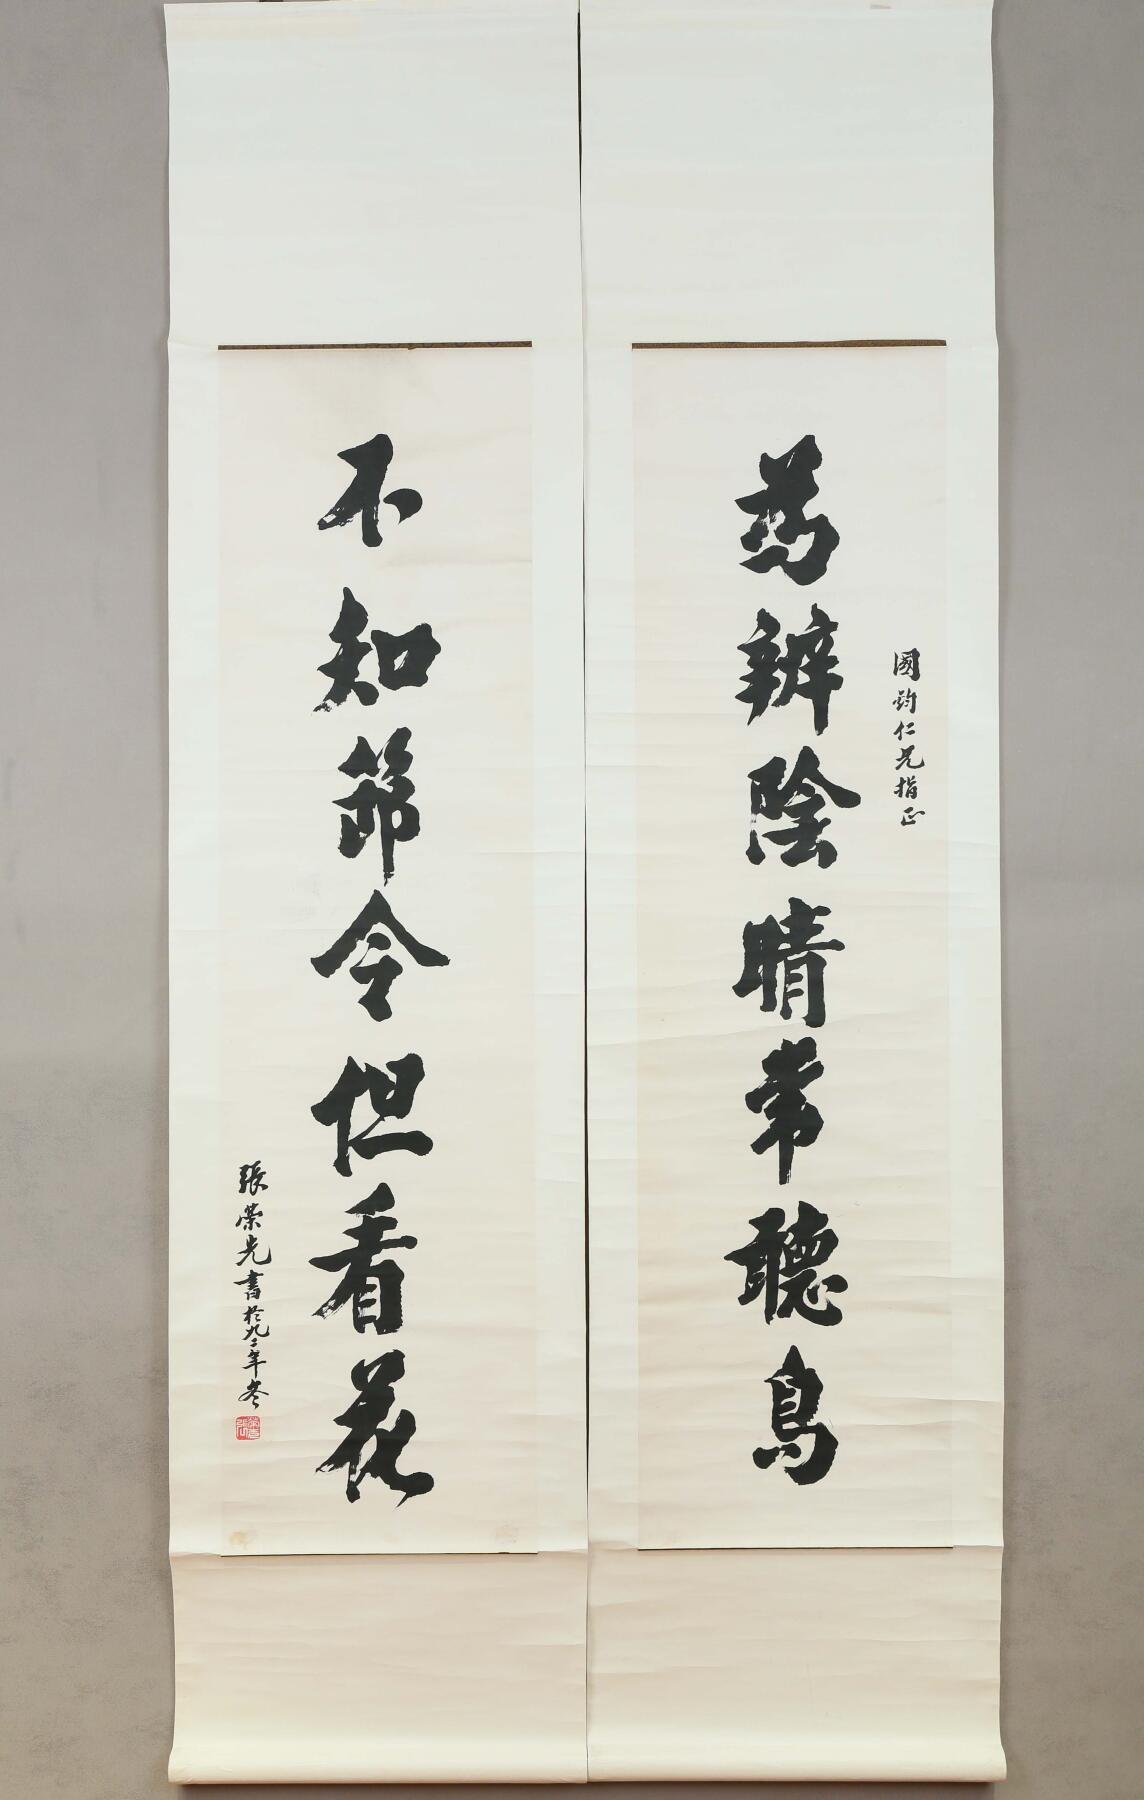 國鈞仁兄指正
為辨陰晴常聽鳥
不知節令但看花
張榮光書於九二年冬